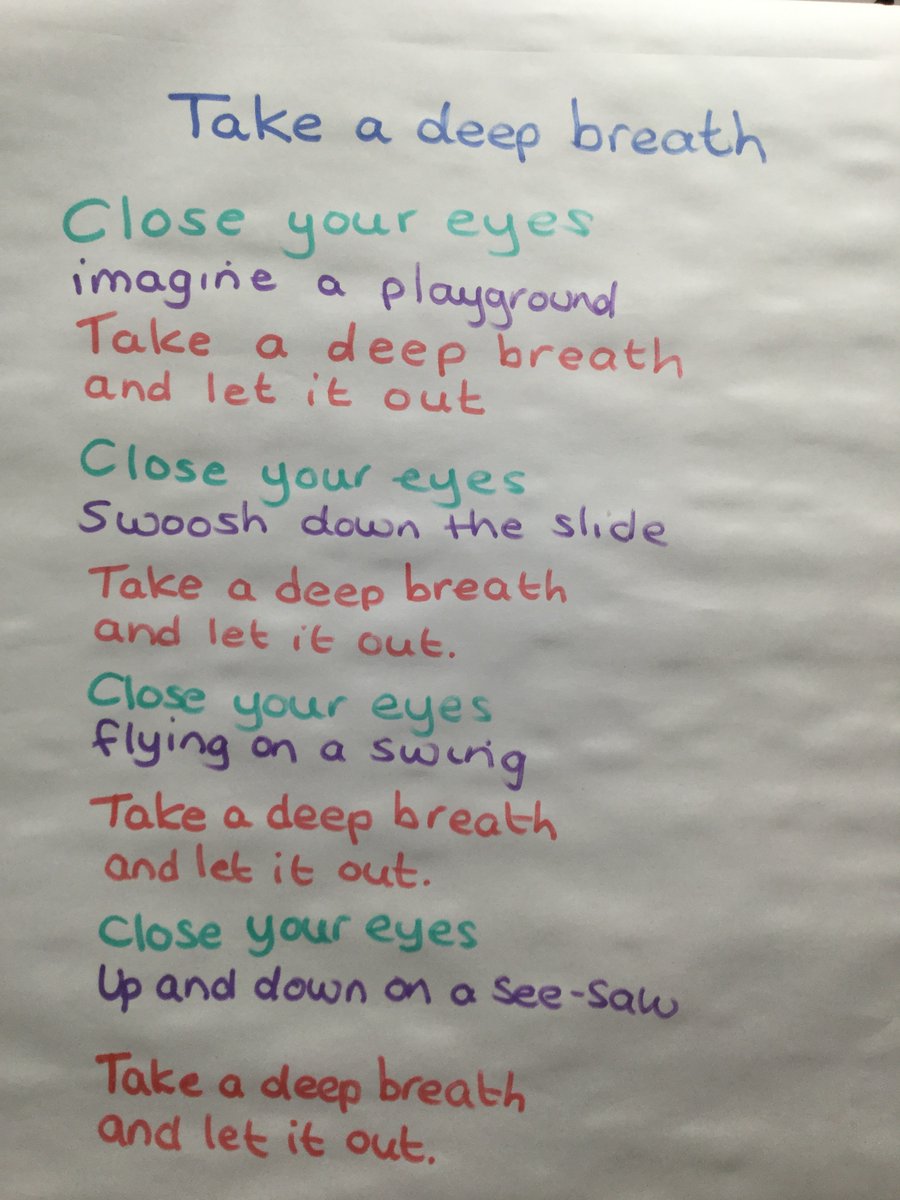 Take a deep breath
Close your eyes
imagine a playground
Take a deep breath
and let it out
Close your eyes
Swoosh down the slide
Take a deep breath
and let it out.
Close your eyes
flying on a swing
Take a deep breath
and let it out.
Close your eyes
Up and down on a see-saw
Take a deep breath
and let it out.